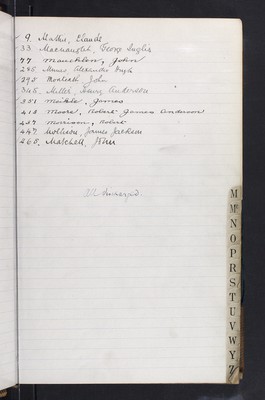 9. Mathis, Claude
33. Macnaughton, George Inglis
77 Mauchlen, John
286. Minnes Alexander Hugh
295 Monteath John
345. Miller, Henry Anderson
351 Meikle, James
418 Moore, Robert James Anderson
437 Morrison, Robert
447. Mollison, James Jackson
268. Matchett, John
M
Mc
N
O
P
R
S
T
U
V
W
Y
Z